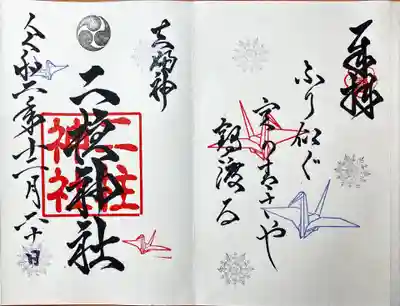 奉拝
ふり仰ぐ
空の青さや
鶴渡る
二柱神社
二柱
神社
令和六年十一月二十日